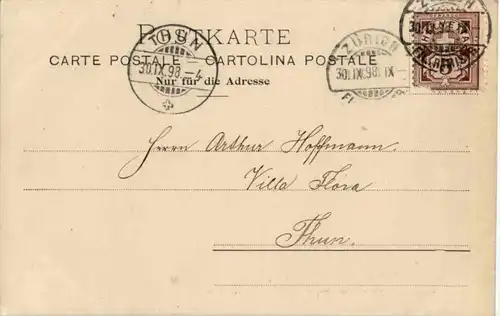 POSTKARTE
CARTE POSTALE CARTOLINA POSTALE
Nur für die Adresse
THUN
30.IX.98.–4
ZÜRICH
30.IX.98. IX
ZÜRICH
30.IX.98. IX
Herrn Arthur Hoffmann.
Villa Flora
Thun.